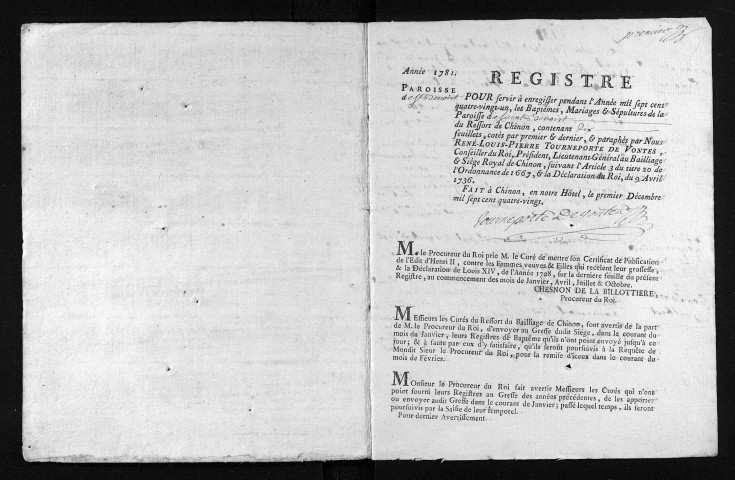 premier
Année 1781.
REGISTRE
PAROISSE
de St Benoist
POUR servir à enregister pendant l'Année mil sept cens
quatre-vingt-un, les Baptêmes, Mariages & Sépultures de la
Paroisse de Saint Benoist
du Ressort de Chinon, contenans dix
feuillets, cotés par premier & dernier, & paraphés par Nous
RENÉ-LOUIS-PIERRE TOURNEPORTE DE VONTES,
Conseiller du Roi, Président, Lieutenant-Général au Bailliage
& Siège Royal de Chinon, suivant l'Article 3 du titre 20 de
l'Ordonnance de 1667, & la Déclaration du Roi, du 9 Avril
1736.
FAIT à Chinon, en notre Hôtel, le premier Décembre
mil sept cent quatre-vingt.
Tourneporte De Vontes
M. le Procureur du Roi prie M. le Curé de mettre son Certificat de Publication
de l'Edit d'Henri II, contre les Femmes veuves & Filles qui recèlent leur grossesse,
& la Déclaration de Louis XIV, de l'Année 1708, sur la derniere feuille du présent
Registre, au commencement des mois de Janvier, Avril, Juillet & Octobre.
CHESNON DE LA BILLOTTIERE,
Procureur du Roi.
MEssieurs les Curés du Ressort du Bailliage de Chinon, sont avertis de la part
de M. le Procureur du Roi, d'envoyer au Greffe dudit Siège, dans le courant du
mois de Janvier, leurs Registres de Baptême qu'ils n'ont point envoyé jusqu'à ce
jour; & à faute par eux d'y satisfaire, qu'ils seront poursuivis à la Requête de
Mondit Sieur le Procureur du Roi, pour la remise d'iceux dans le courant du
mois de Février.
MOnsieur le Procureur du Roi fait avertir Messieurs les Curés qui n'ont
point fourni leurs Registres au Greffe des années précédentes, de les apporter
ou envoyer audit Greffe dans le courant de Janvier; passé lequel temps, ils seront
poursuivis par la Saisie de leur temporel.
Pour dernier Avertissement.